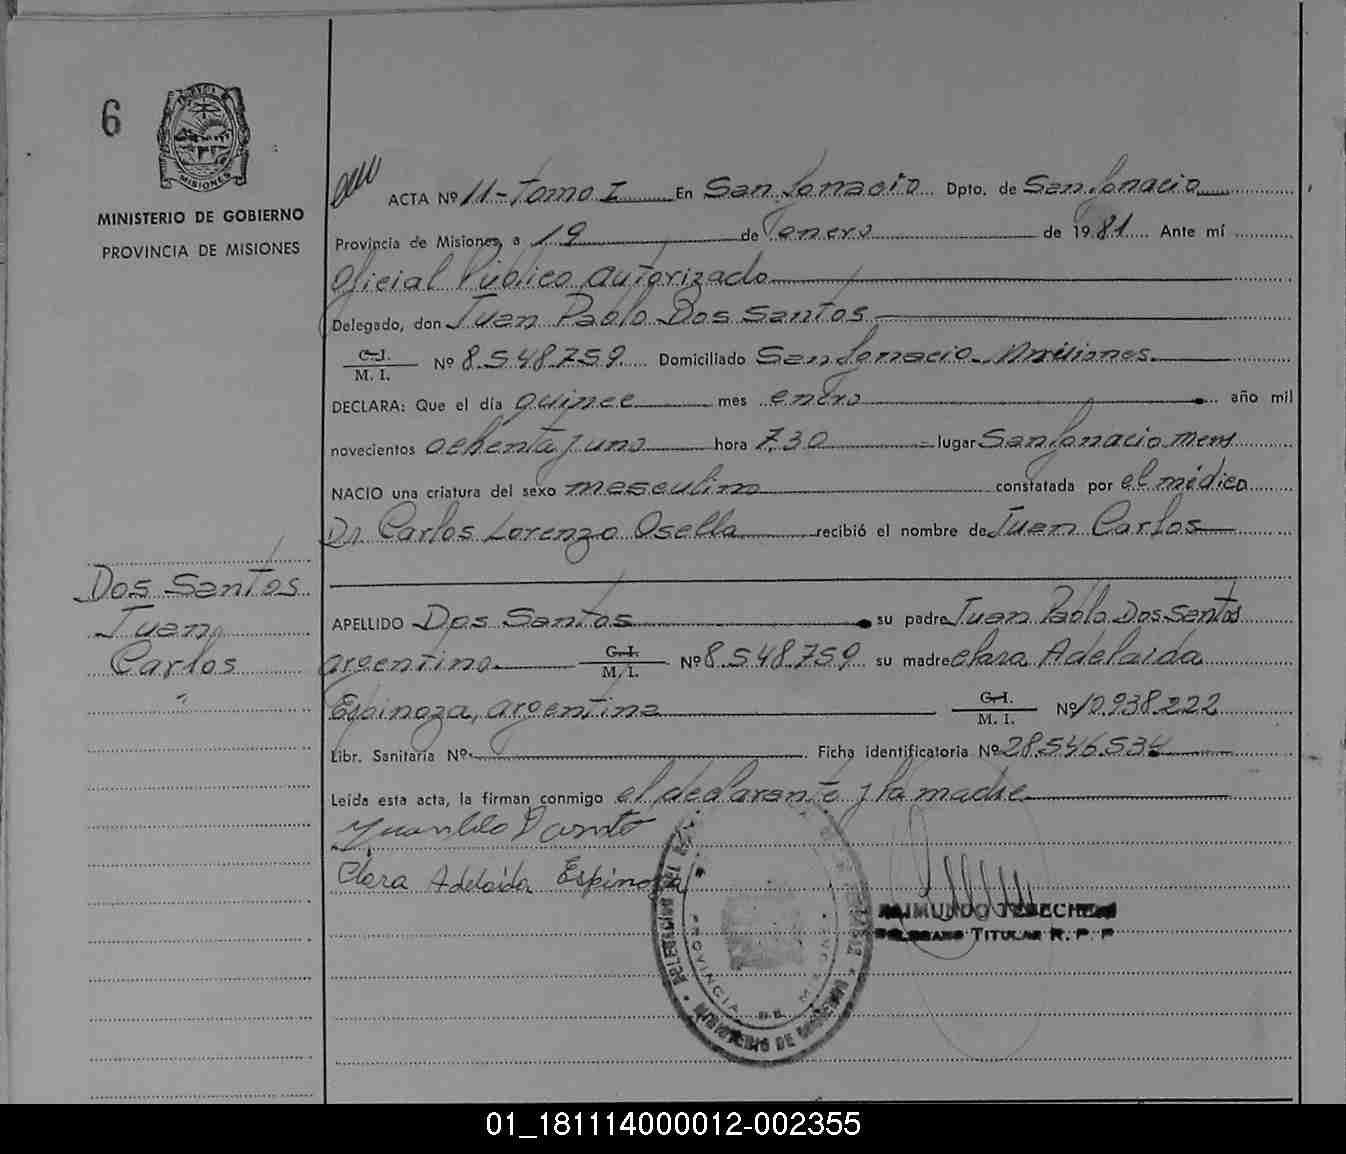 6
MISIONES
MINISTERIO DE GOBIERNO
PROVINCIA DE MISIONES
ACTA Nº 11-Tomo I En San Ignacio Dpto. de San Ignacio
Provincia de Misiones, a 19 de enero de 1981 Ante mí
Oficial Público Autorizado
Delegado, don Juan Pablo Dos Santos
C.I.
M. I. Nº 8.548.759 Domiciliado San Ignacio Misiones
DECLARA: Que el día quince mes enero año mil
novecientos ochenta y uno hora 7,30 lugar San Ignacio Mnes
NACIO una criatura del sexo masculino constatada por el médico
Dr. Carlos Lorenzo Osella recibió el nombre de Juan Carlos
Dos Santos
Juan
Carlos
APELLIDO Dos Santos su padre Juan Pablo Dos Santos
argentino C.I.
M. I. Nº 8.548.759 su madre Clara Adelaida
Espinoza, argentina C.I.
M. I. Nº 10.938.222
Libr. Sanitaria Nº Ficha identificatoria Nº 28.546.534
Leída esta acta, la firman conmigo el declarante y la madre
Clara Adelaida Espinoza
RAIMUNDO
TITULAR R. P. P
PROVINCIA DE MISIONES
MINISTERIO DE GOBIERNO
01_181114000012-002355